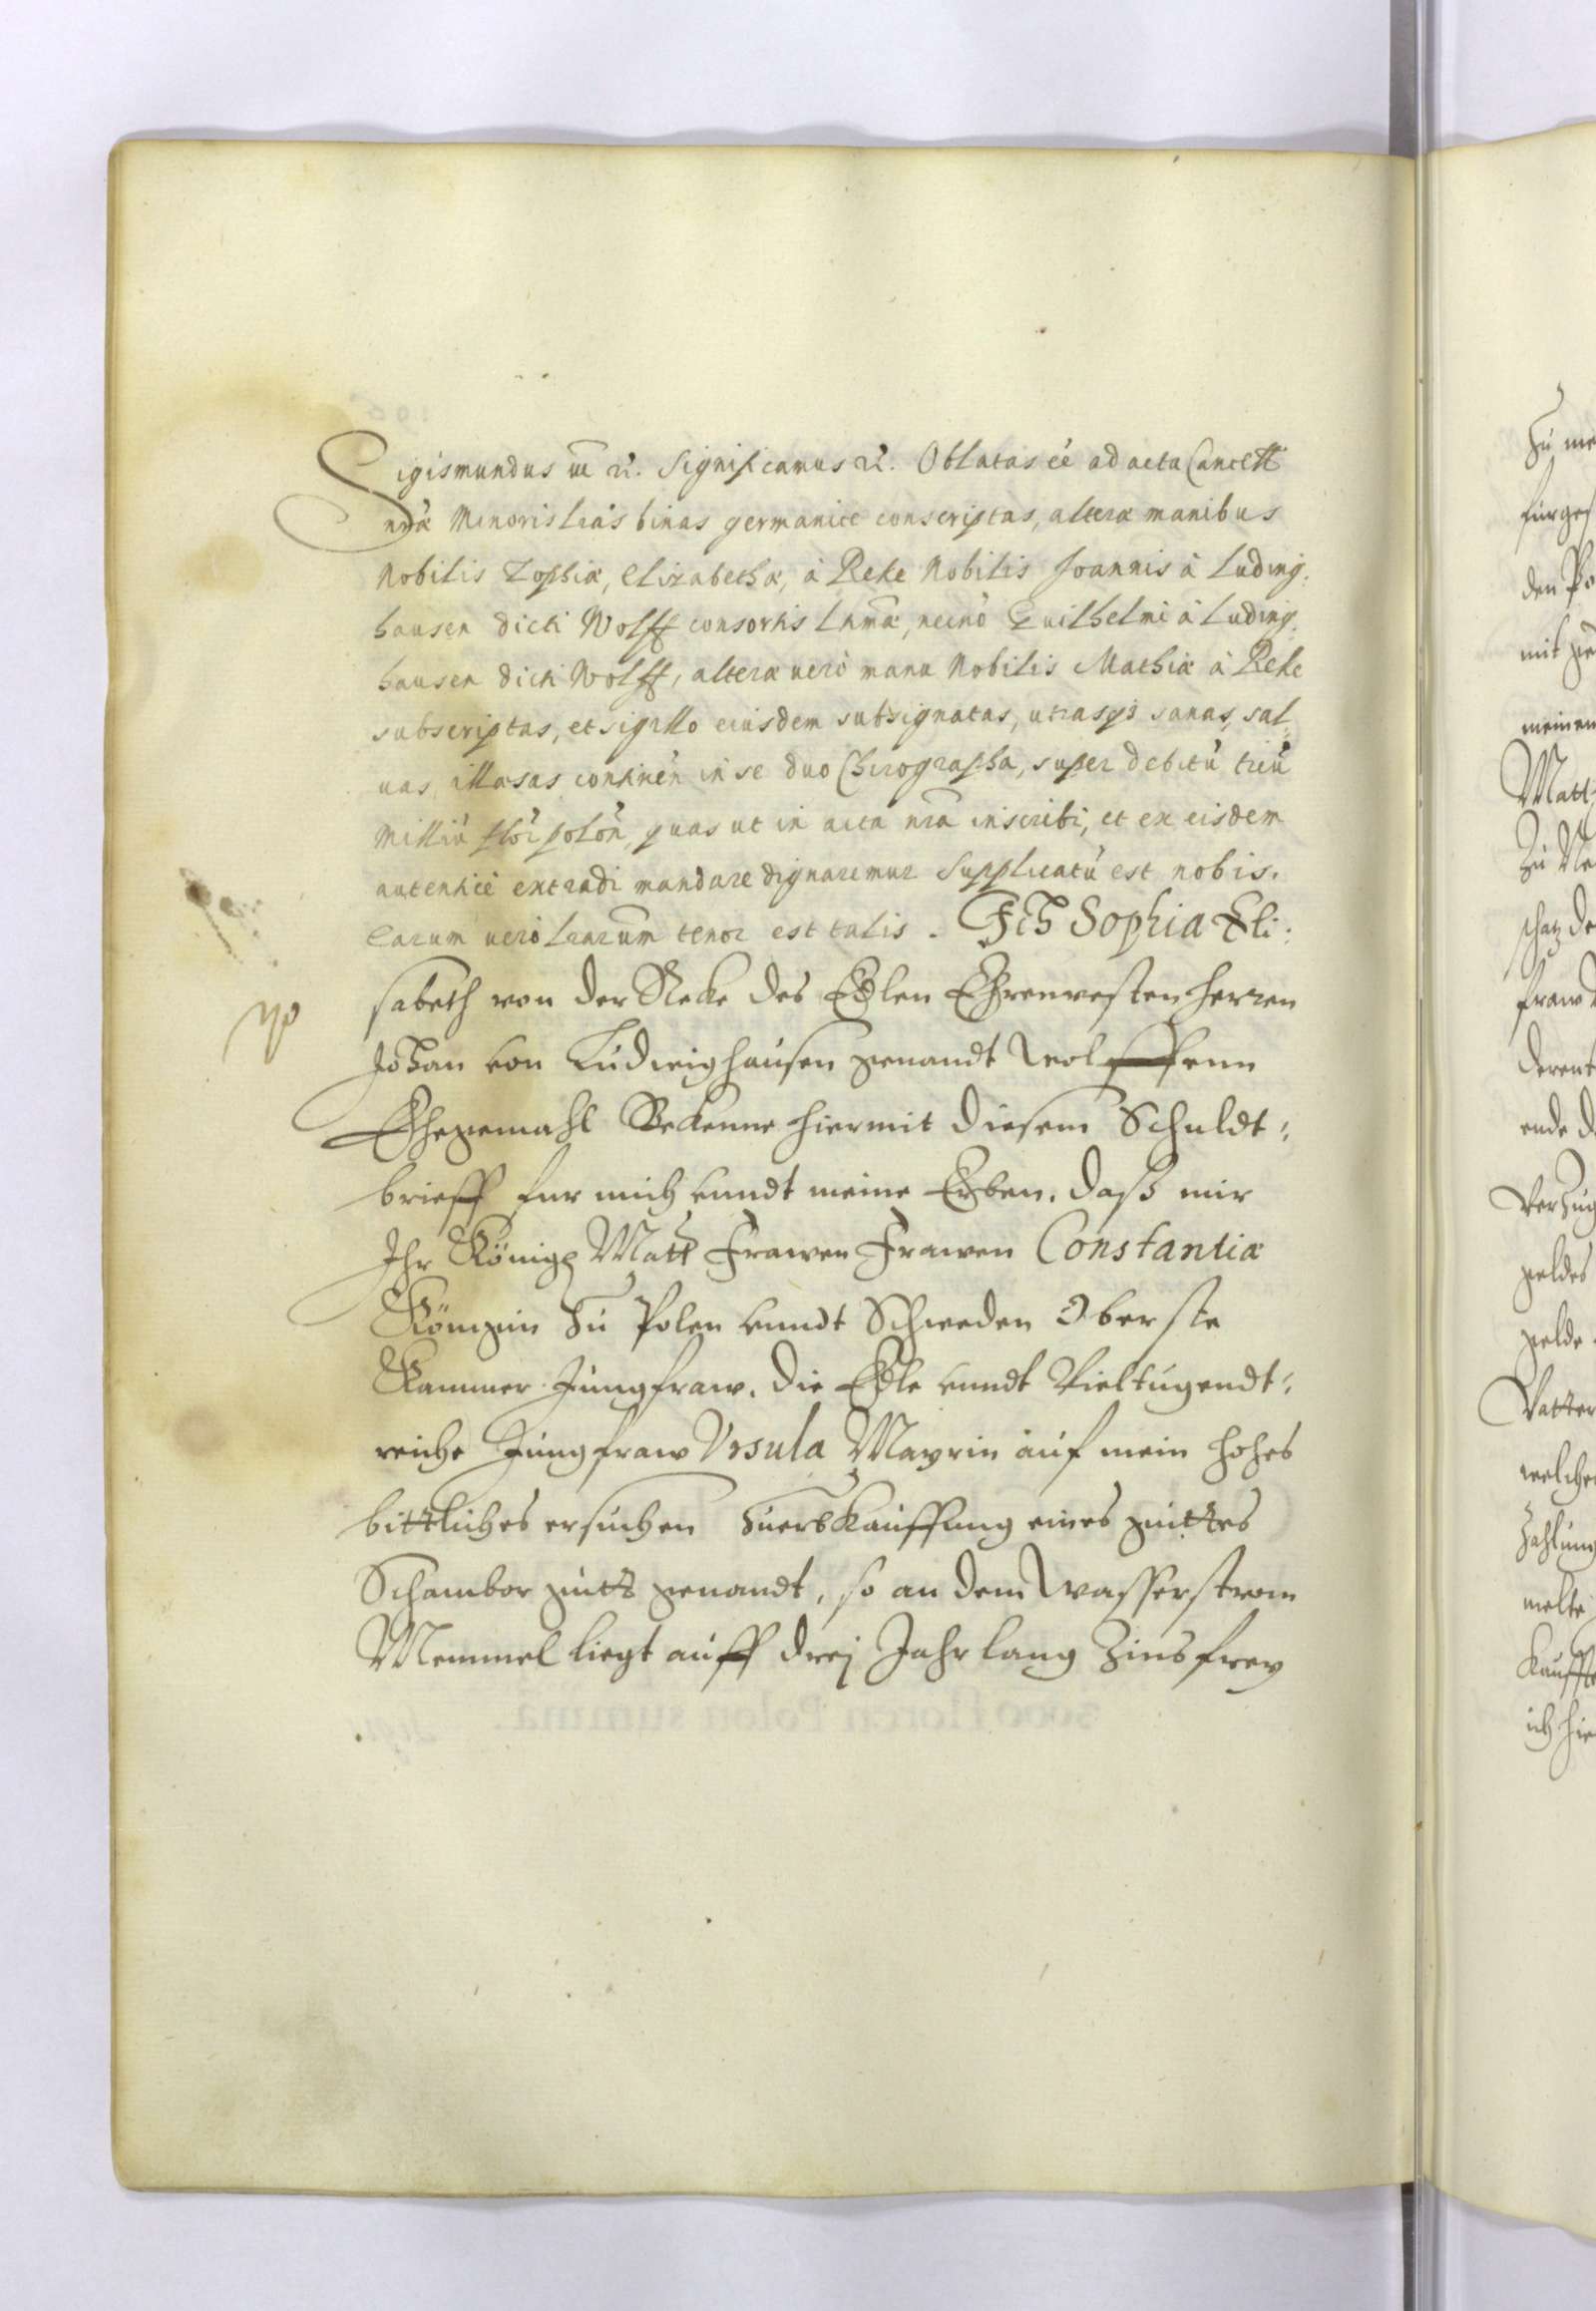 Sigismundus III etc. Significamus etc. Oblatas eē ad acta Cancell
nrӕ Minoris lrās binas germanice conscriptas, alterӕ manibus
Nobilis Zophiӕ, Elizabethӕ, à Reke Nobilis Joannis à Luding:
hausen dicti Wolff consortis lrmӕ, necnō Guilhelmi à Luding:
hausen dicti Wolff, alterӕ uerò manu Nobilis Mathiӕ à Reke
subscriptas, et sigillo eiusdem subsignatas, utrasq3 sanas, sal:
uas, illӕsas continēn in se duo Chirographa, super debitū triū
Milliū flōr polōn, quas ut in acta nrā inscribi, et ex eisdem
autenticè extradi mandare dignaremur Supplicatū est nobis.
Earum uerò lrarum tenor est talis. Ich Sophia Eli:
sabeth von der Recke des Edlen Ehrenvesten herren
Johan von Ludwighausen genandt Wolffenn
Ehegemahl Bekenne hiermit diesem Schuldt:
brieff fur mich vnndt meine Erben, daß mir
Ihr Königl Matt Frawen Frawen Constantiӕ
Königin Zu Polen vnndt Schweden Oberste
Kammer Jungfraw, die Edle vnndt Vieltugendt:
reiche Jungfraw Vrsula Mayrin auf mein hohes
bittliches ersuchen Zuerkauffung eines guttes
Schambor gutts genandt, so an dem Wasserstrom
Memmel liegt auff drej Jahr lang Zinsfrey